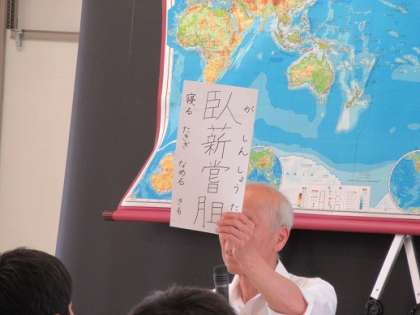 がしんしょうた
臥薪嘗胆
寝る たきぎ なめる きも